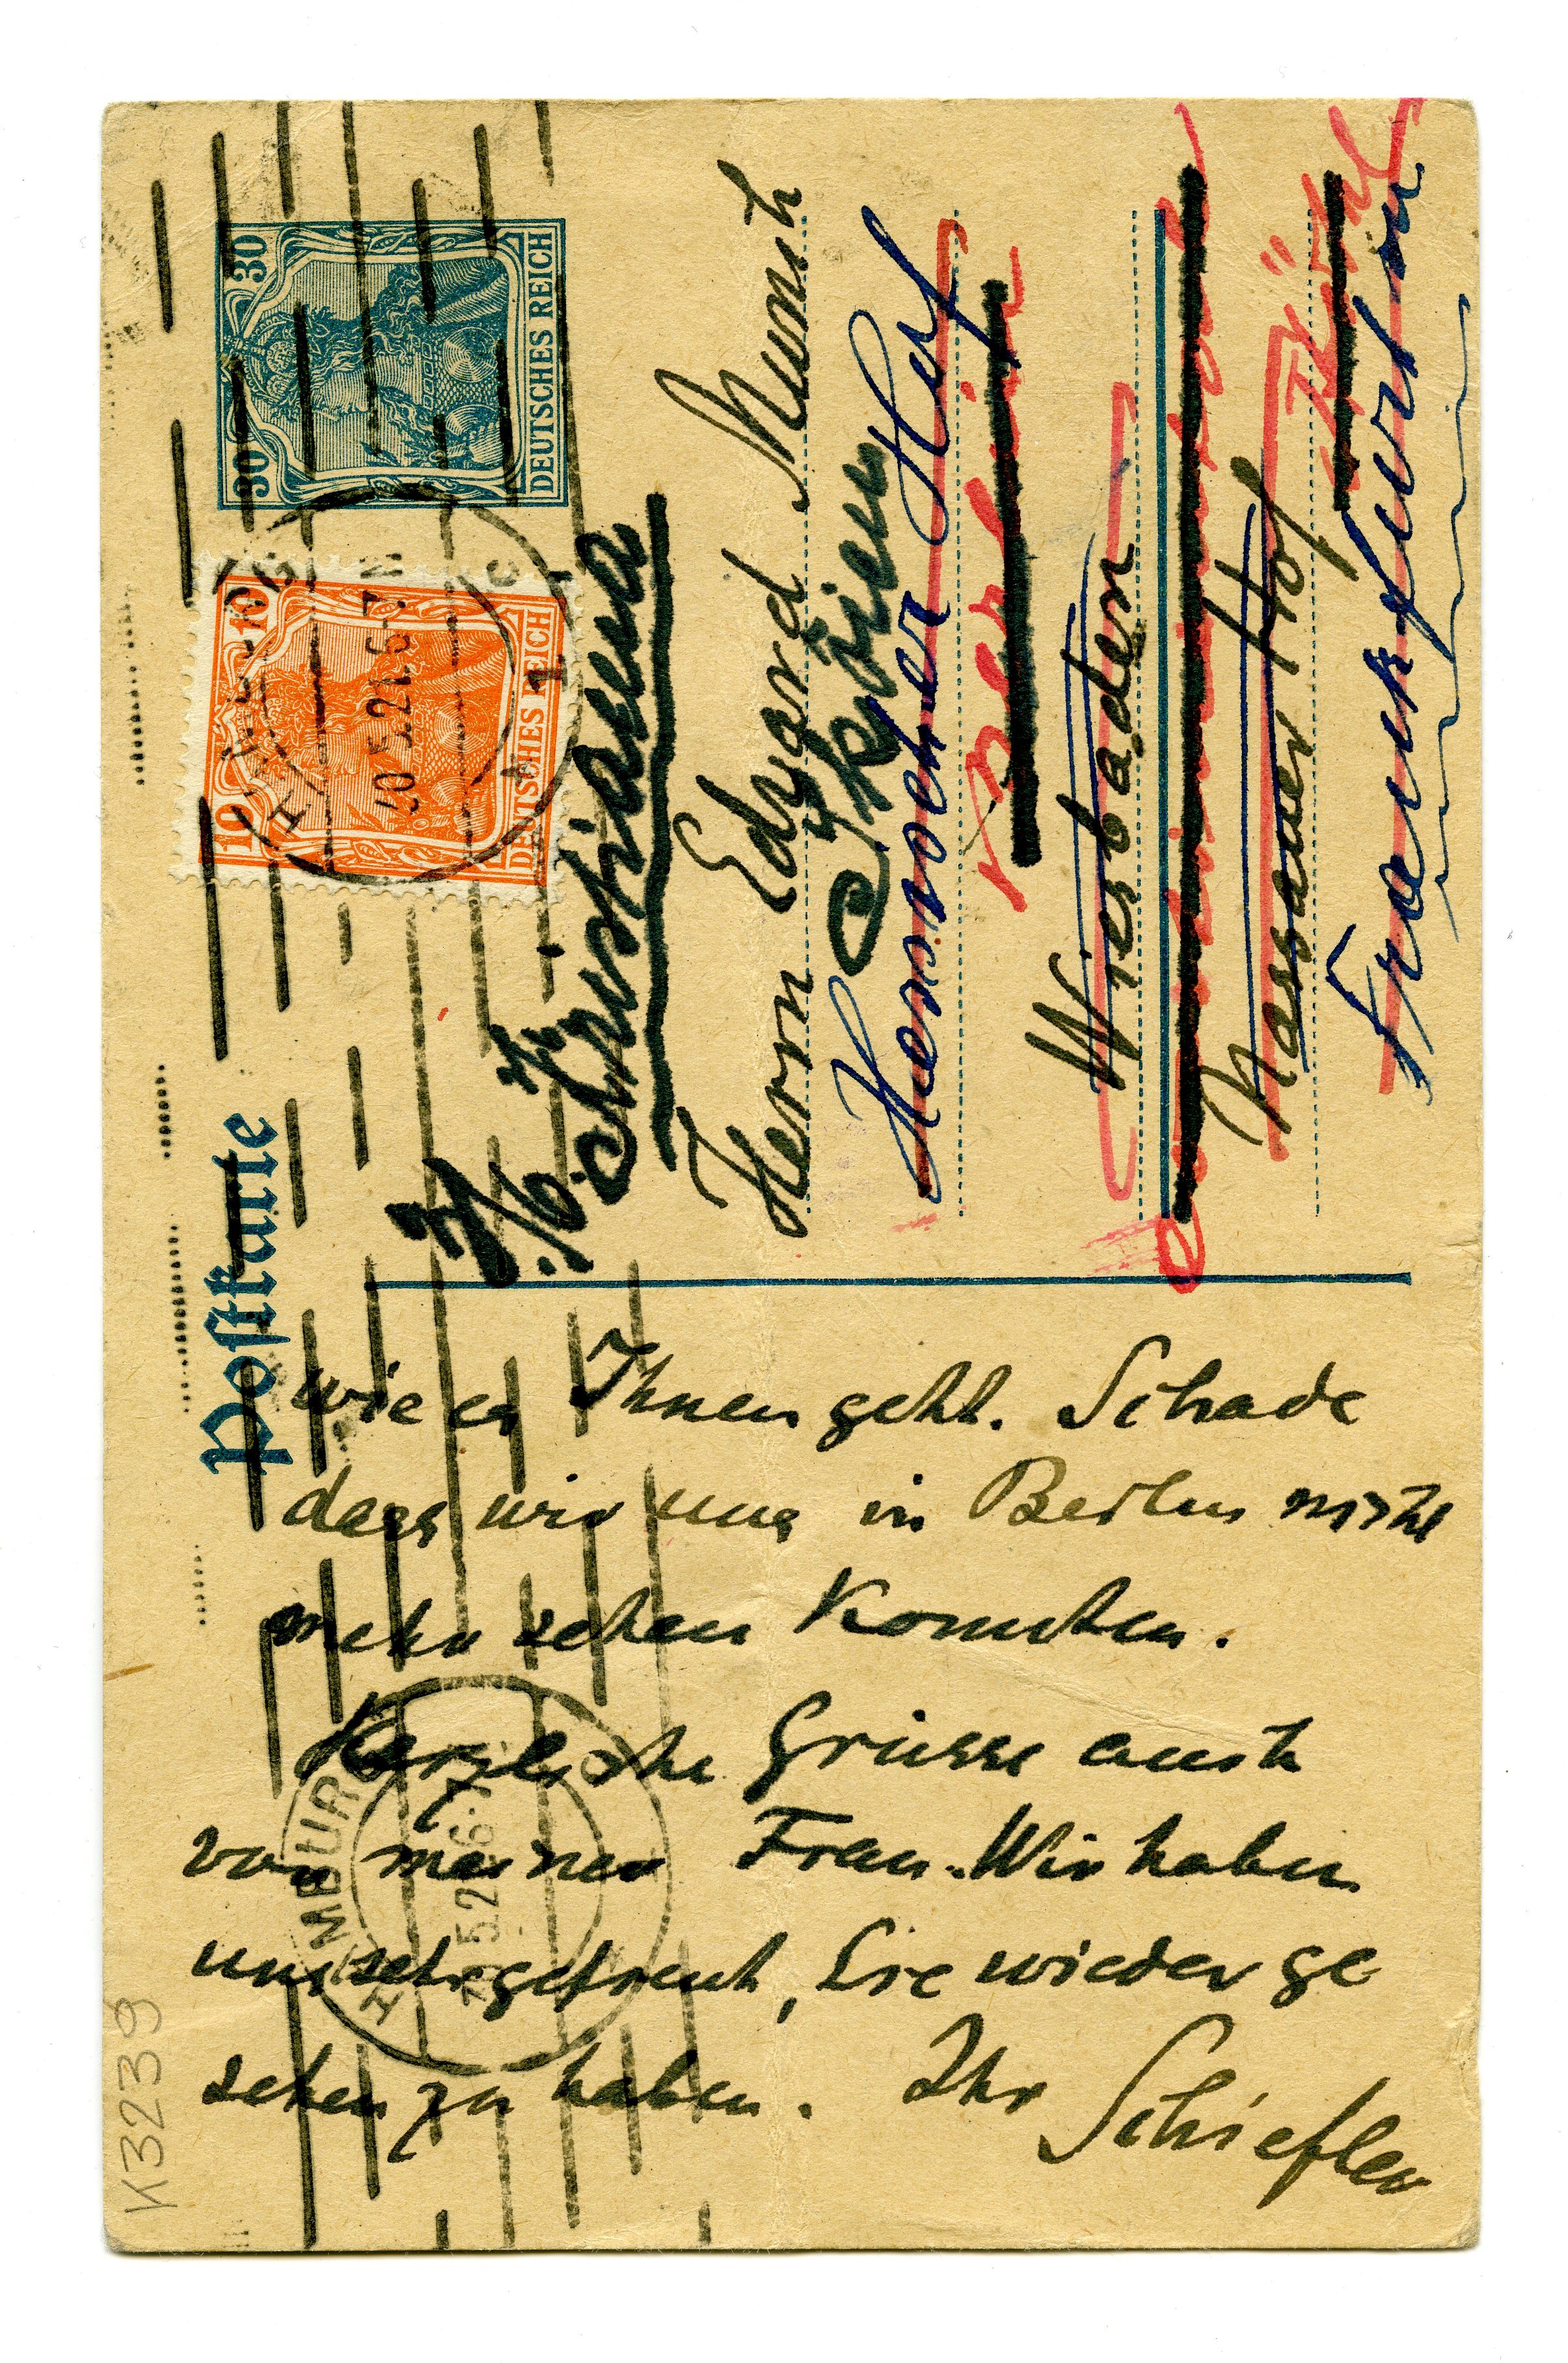 Postkarte
30 30
DEUTSCHES REICH
10 10
DEUTSCHES REICH
20.5.21.6-7 N
HAMBURG
Kristiania
Herrn Edvard Munch
Skøien
Hannover Hof
Berlin
Wiesbaden
Nassauer Hof
Frankfurt am
wie es Ihnen geht. Schade
dass wir uns in Berlin nicht
mehr sehen konnten.
Herzliche Grüsse auch
von meiner Frau. Wir haben
uns sehr gefreut, Sie wieder ge
sehen zu haben. Ihr Schiefler
K3239